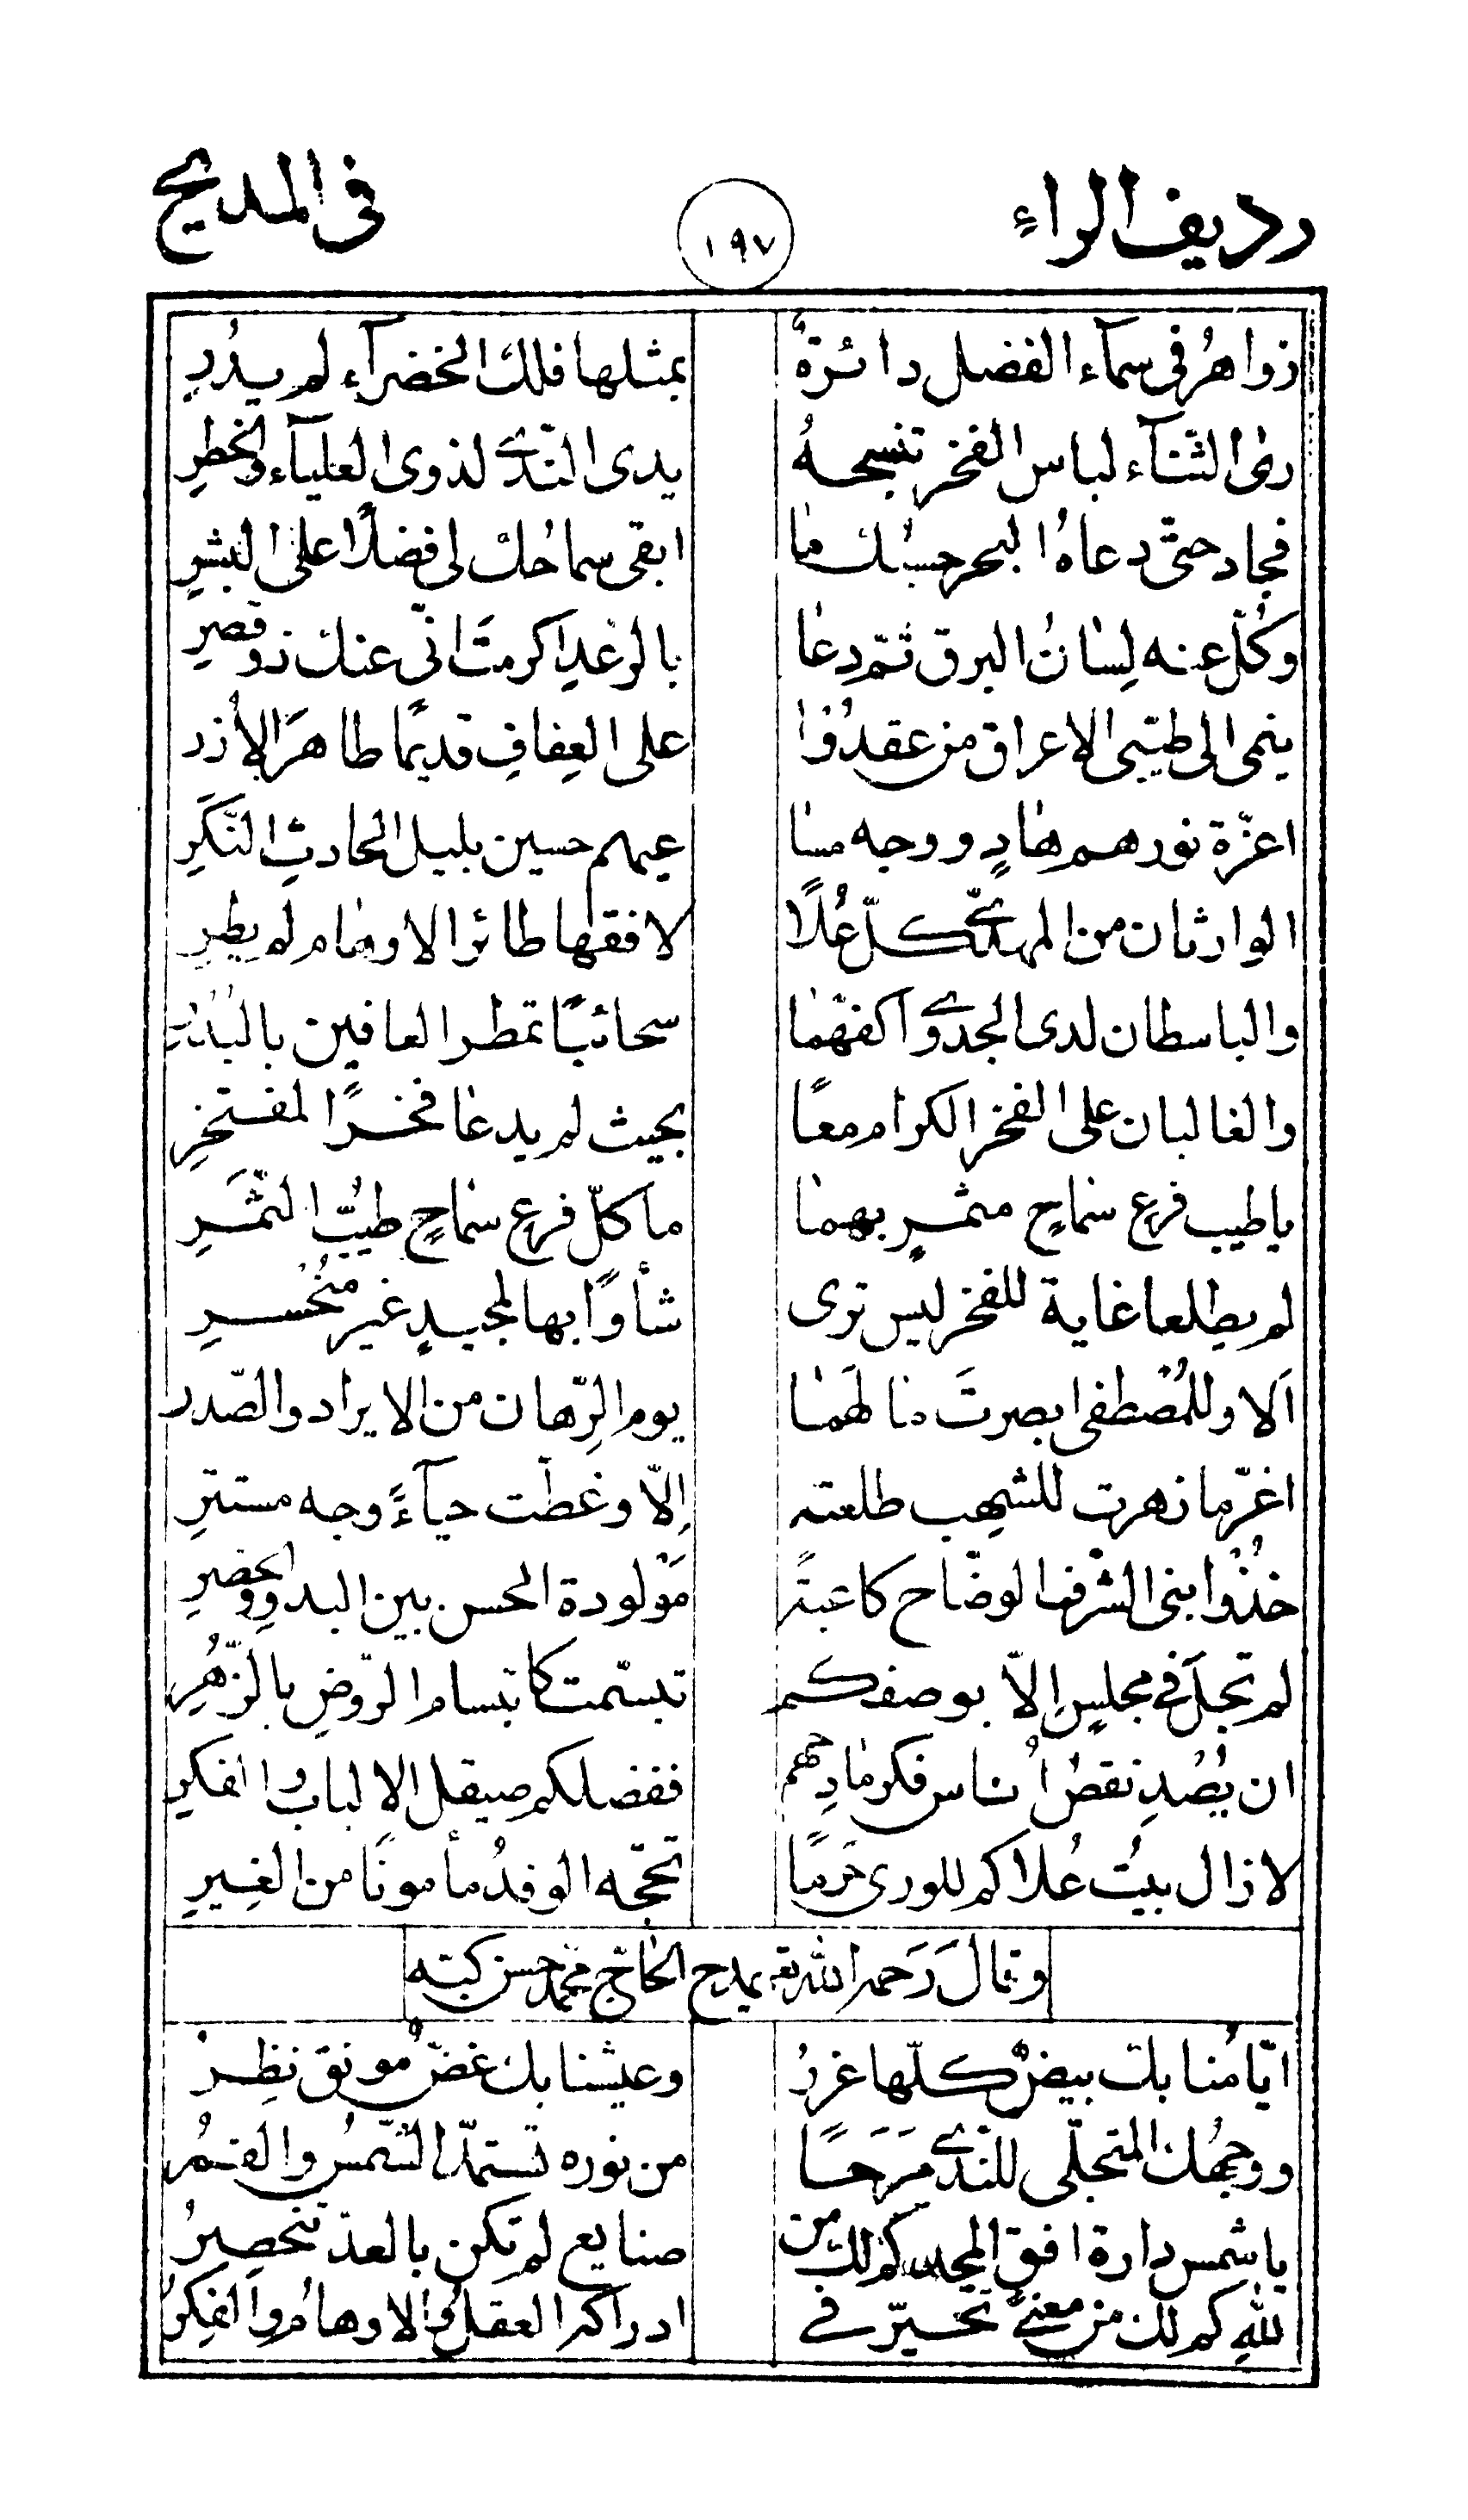 رديف الراءِ ١٩٧ فى المديح
زواهرُ فى سمآء الفضل دائرةٌ بمثلها فلك الخضرآء لم يدُرِ
رأى الثنآء لباس الفخر تنسجهُ يدى الندى لذوى العليآء والخطرِ
فجاد حتى دعاهُ البحر حسبك ما ابقى سماحُك لى فضلاً على البشرِ
وكلّ عنه لِسانُ البرق ثمّ دعا بالرغدِ اكرمتَ انّى عنك ذو قصرِ
ينمى الى طيّبى الاعراق من عقدُوا على العِفافِ قديمًا طاهرَ الأُزر
اعزّة نورهم هادٍ ووجه مسا عيهم حسين بليل الحادثِ النَكرِ
الوارثان من المهدىّ كلّ عُلاً لافقها طائر الاوهام لم يطِرِ
والباسطان لدى الجدوى اكفّهما سحائبًا تمطر العافين بالبُدَرِ
والغالبان على الفخر الكرام معًا بحيث لم يدعا فخرًا لمفتخرِ
يا طيب فرع سماحٍ مثمرٍ بهما ما كلّ فرع سماحٍ طيبُ الثمَرِ
لم يطلعا غاية للفخر ليس ترى شأوًا بها لمجيدٍ غير مُنحُسرِ
اَلا وللمُصْطفى ابصرتَ ما لهَما يوم الرِّهان من الايراد والصّدر
اغرّ ما زهرت للشهب طلعته اِلاّ وغطّت حيآءً وجه مستترِ
خذُوا بنى الشرف الوضّاح كاعبةً مَوْلودة الحسن بين البدوِ والحضرِ
لم تجلَ فى مجلسٍ الاّ بوصفكم تبسّمت كابتسام الرّوضِ بالزّهُرِ
ان يُصْدِ نقصُ اُناس فكر مادِحهم ففضلكم صيقل الالباب والفكرِ
لا زال بيتُ عُلاكم للورى حَرَمًا تحجّه الوفدُ مأمونًا من الغِيرِ
وقال رَحمه الله تع يمدح الحاج محمد حسن كبّه
ايّامُنا بك بيضٌ كلّها غررُ وعيشنا بك غضّ مونق نظِرُ
ووجهُك المتجلّى للندى مَرَحًا من نوره تستمدّ الشّمسُ والقمرُ
يا شمس دارة افق المجد كم لك من صنايع لم تكن بالعدّ تنحصِرُ
للّهِ كم لك من معنىً تحيّر فى ادراكه العقلُ والاوهامُ والفِكَرُ